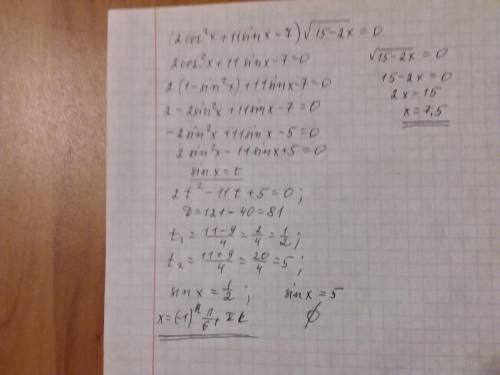 (2cos²x + 11sinx - 7)√15-2x = 0
2cos²x + 11sinx - 7 = 0
2(1-sin²x) + 11sinx - 7 = 0
2 - 2sin²x + 11sinx - 7 = 0
-2sin²x + 11sinx - 5 = 0
2sin²x - 11sinx + 5 = 0
sin x = t
2t² - 11t + 5 = 0;
D = 121 - 40 = 81
t₁ = (11-9)/4 = 2/4 = 1/2;
t₂ = (11+9)/4 = 20/4 = 5;
sin x = 1/2; sin x = 5
x = (-1)ᵏ π/6 + πk ∅
√15-2x = 0
15 - 2x = 0
2x = 15
x = 7,5